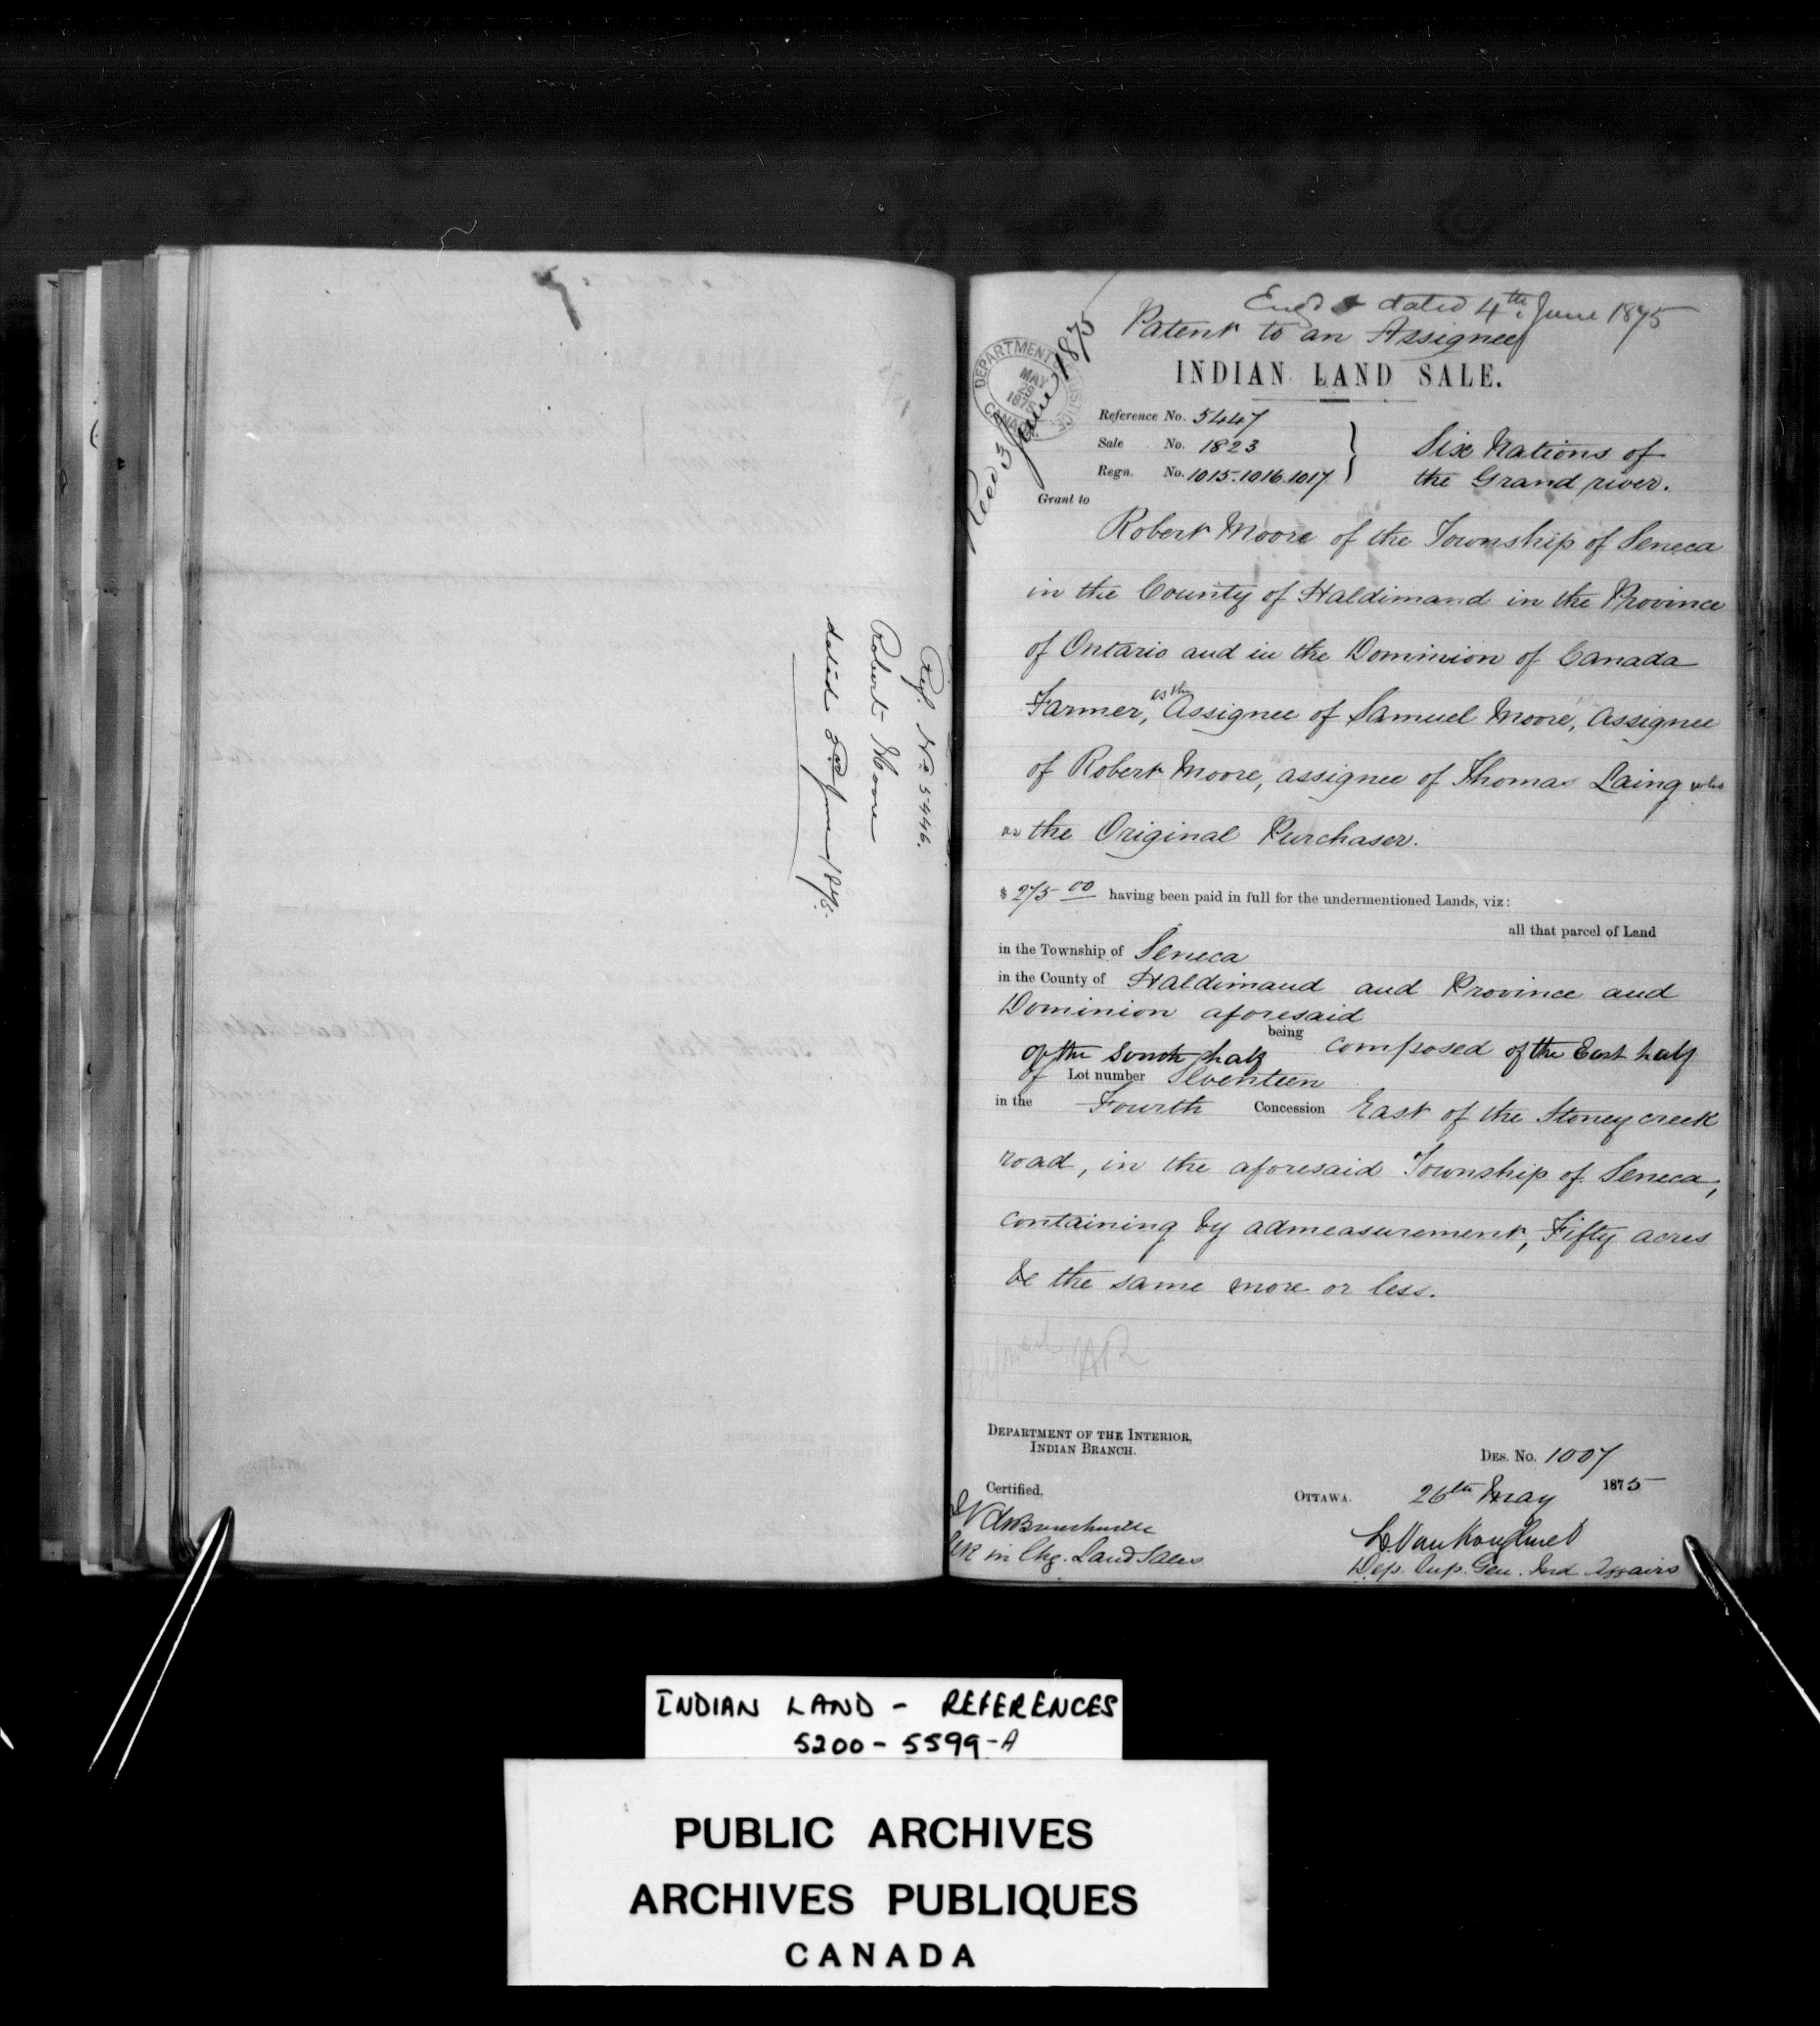 Ref. No 5446.
Robert Moore
dated June 1875.
Engd & dated 4th June 1875
Patent to an Assignee
INDIAN LAND SALE.
DEPARTMENT JUSTICE
MAY
26
1875
CANADA
Recd 3 June 1875
Reference No. 5447
Sale No. 1823
Regn. No. 1015.1016.1017
Six Nations of
the Grand river.
Grant to
Robert Moore of the Township of Seneca
in the County of Haldimand in the Province
of Ontario and in the Dominion of Canada
Farmer, as the Assignee of Samuel Moore, Assignee
of Robert Moore, assignee of Thomas Laing who
the Original Purchaser.
$ 275 00 having been paid in full for the undermentioned Lands, viz:
all that parcel of Land
in the Township of Seneca
in the County of Haldimand and Province and
Dominion aforesaid
being composed of the East half
of the South half
of Lot number Seventeen
in the Fourth Concession East of the Stoney creek
road, in the aforesaid Township of Seneca,
containing by admeasurement, Fifty acres
be the same more or less.
DEPARTMENT OF THE INTERIOR,
INDIAN BRANCH.
DES. NO. 1007
Certified,
OTTAWA. 26th May 1875
L. Vankoughnet
in Chg. Land Sales
Dep. Sup. Gen. Ind. Affairs
INDIAN LAND - REFERENCES
5200 - 5599-A
PUBLIC ARCHIVES
ARCHIVES PUBLIQUES
CANADA